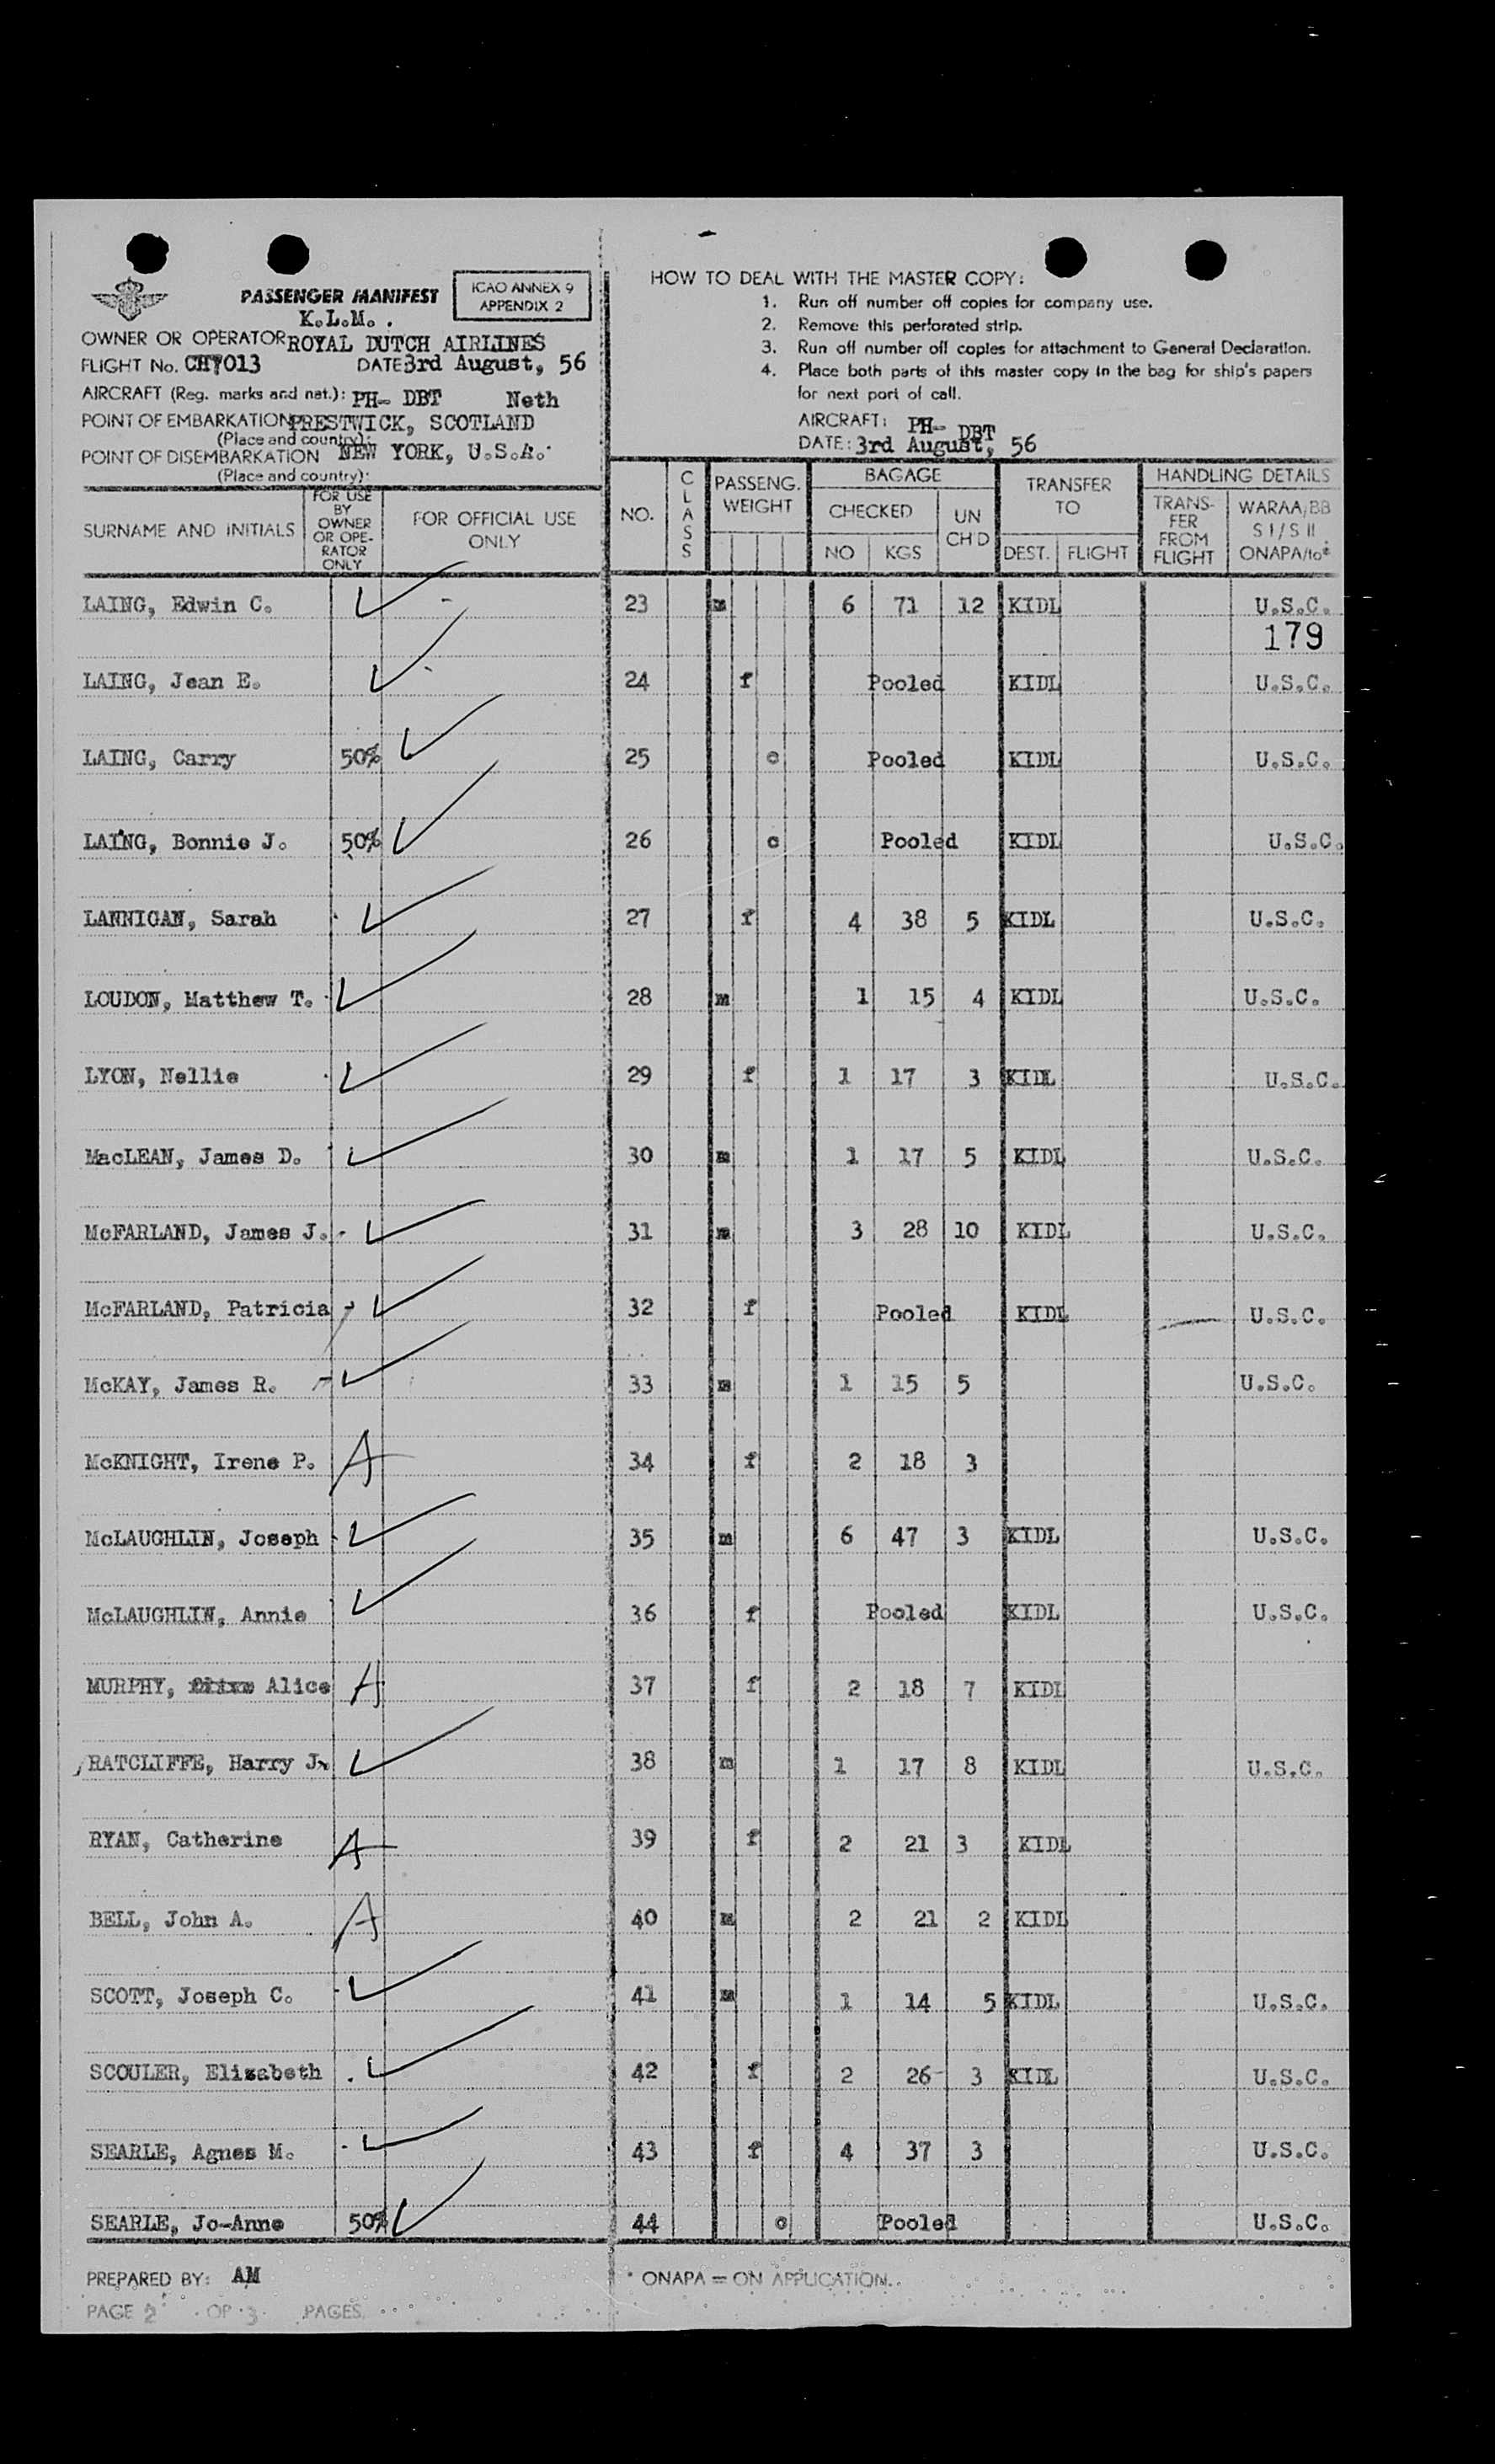 PASSENGER MANIFEST
ICAO ANNEX 9
APPENDIX 2
K.L.M. .
OWNER OR OPERATOR ROYAL DUTCH AIRLINES
FLIGHT No. CH7013 DATE 3rd August, 56
AIRCRAFT (Reg. marks and nat.): PH- DBT Neth
POINT OF EMBARKATION PRESTWICK, SCOTLAND
(Place and country):
POINT OF DISEMBARKATION NEW YORK, U.S.A.
(Place and country):
HOW TO DEAL WITH THE MASTER COPY:
1. Run off number off copies for company use.
2. Remove this perforated strip.
3. Run off number off copies for attachment to General Declaration.
4. Place both parts of this master copy in the bag for ship's papers
for next port of call.
AIRCRAFT: PH- DBT
DATE: 3rd August, 56
SURNAME AND INITIALS
FOR USE
BY
OWNER
OR OPE-
RATOR
ONLY
FOR OFFICIAL USE
ONLY
NO.
CLASS
PASSENG.
WEIGHT
BAGAGE
CHECKED
NO KGS
UN
CH'D
TRANSFER
TO
DEST. FLIGHT
HANDLING DETAILS
TRANS-
FER
FROM
FLIGHT
WARAA/BB
S I / S II
ONAPA/to*
LAING, Edwin C. 23 m 6 71 12 KIDL U.S.C.
179
LAING, Jean E. 24 f Pooled KIDL U.S.C.
LAING, Carry 50% 25 c Pooled KIDL U.S.C.
LAING, Bonnie J. 50% 26 c Pooled KIDL U.S.C.
LANNIGAN, Sarah 27 f 4 38 5 KIDL U.S.C.
LOUDON, Matthew T. 28 m 1 15 4 KIDL U.S.C.
LYON, Nellie 29 f 1 17 3 KIDL U.S.C.
MacLEAN, James D. 30 m 1 17 5 KIDL U.S.C.
McFARLAND, James J. 31 m 3 28 10 KIDL U.S.C.
McFARLAND, Patricia 32 f Pooled KIDL U.S.C.
McKAY, James R. 33 m 1 15 5 U.S.C.
McKNIGHT, Irene P. A 34 f 2 18 3
McLAUGHLIN, Joseph 35 m 6 47 3 KIDL U.S.C.
McLAUGHLIN, Annie 36 f Pooled KIDL U.S.C.
MURPHY, Alice A 37 f 2 18 7 KIDL
RATCLIFFE, Harry J. 38 m 1 17 8 KIDL U.S.C.
RYAN, Catherine A 39 f 2 21 3 KIDL
BELL, John A. A 40 m 2 21 2 KIDL
SCOTT, Joseph C. 41 m 1 14 5 KIDL U.S.C.
SCOULER, Elizabeth 42 f 2 26 3 KIDL U.S.C.
SEARLE, Agnes M. 43 f 4 37 3 U.S.C.
SEARLE, Jo-Anne 50% 44 c Pooled U.S.C.
PREPARED BY: AM
* ONAPA = ON APPLICATION.
PAGE 2 OF 3 PAGES